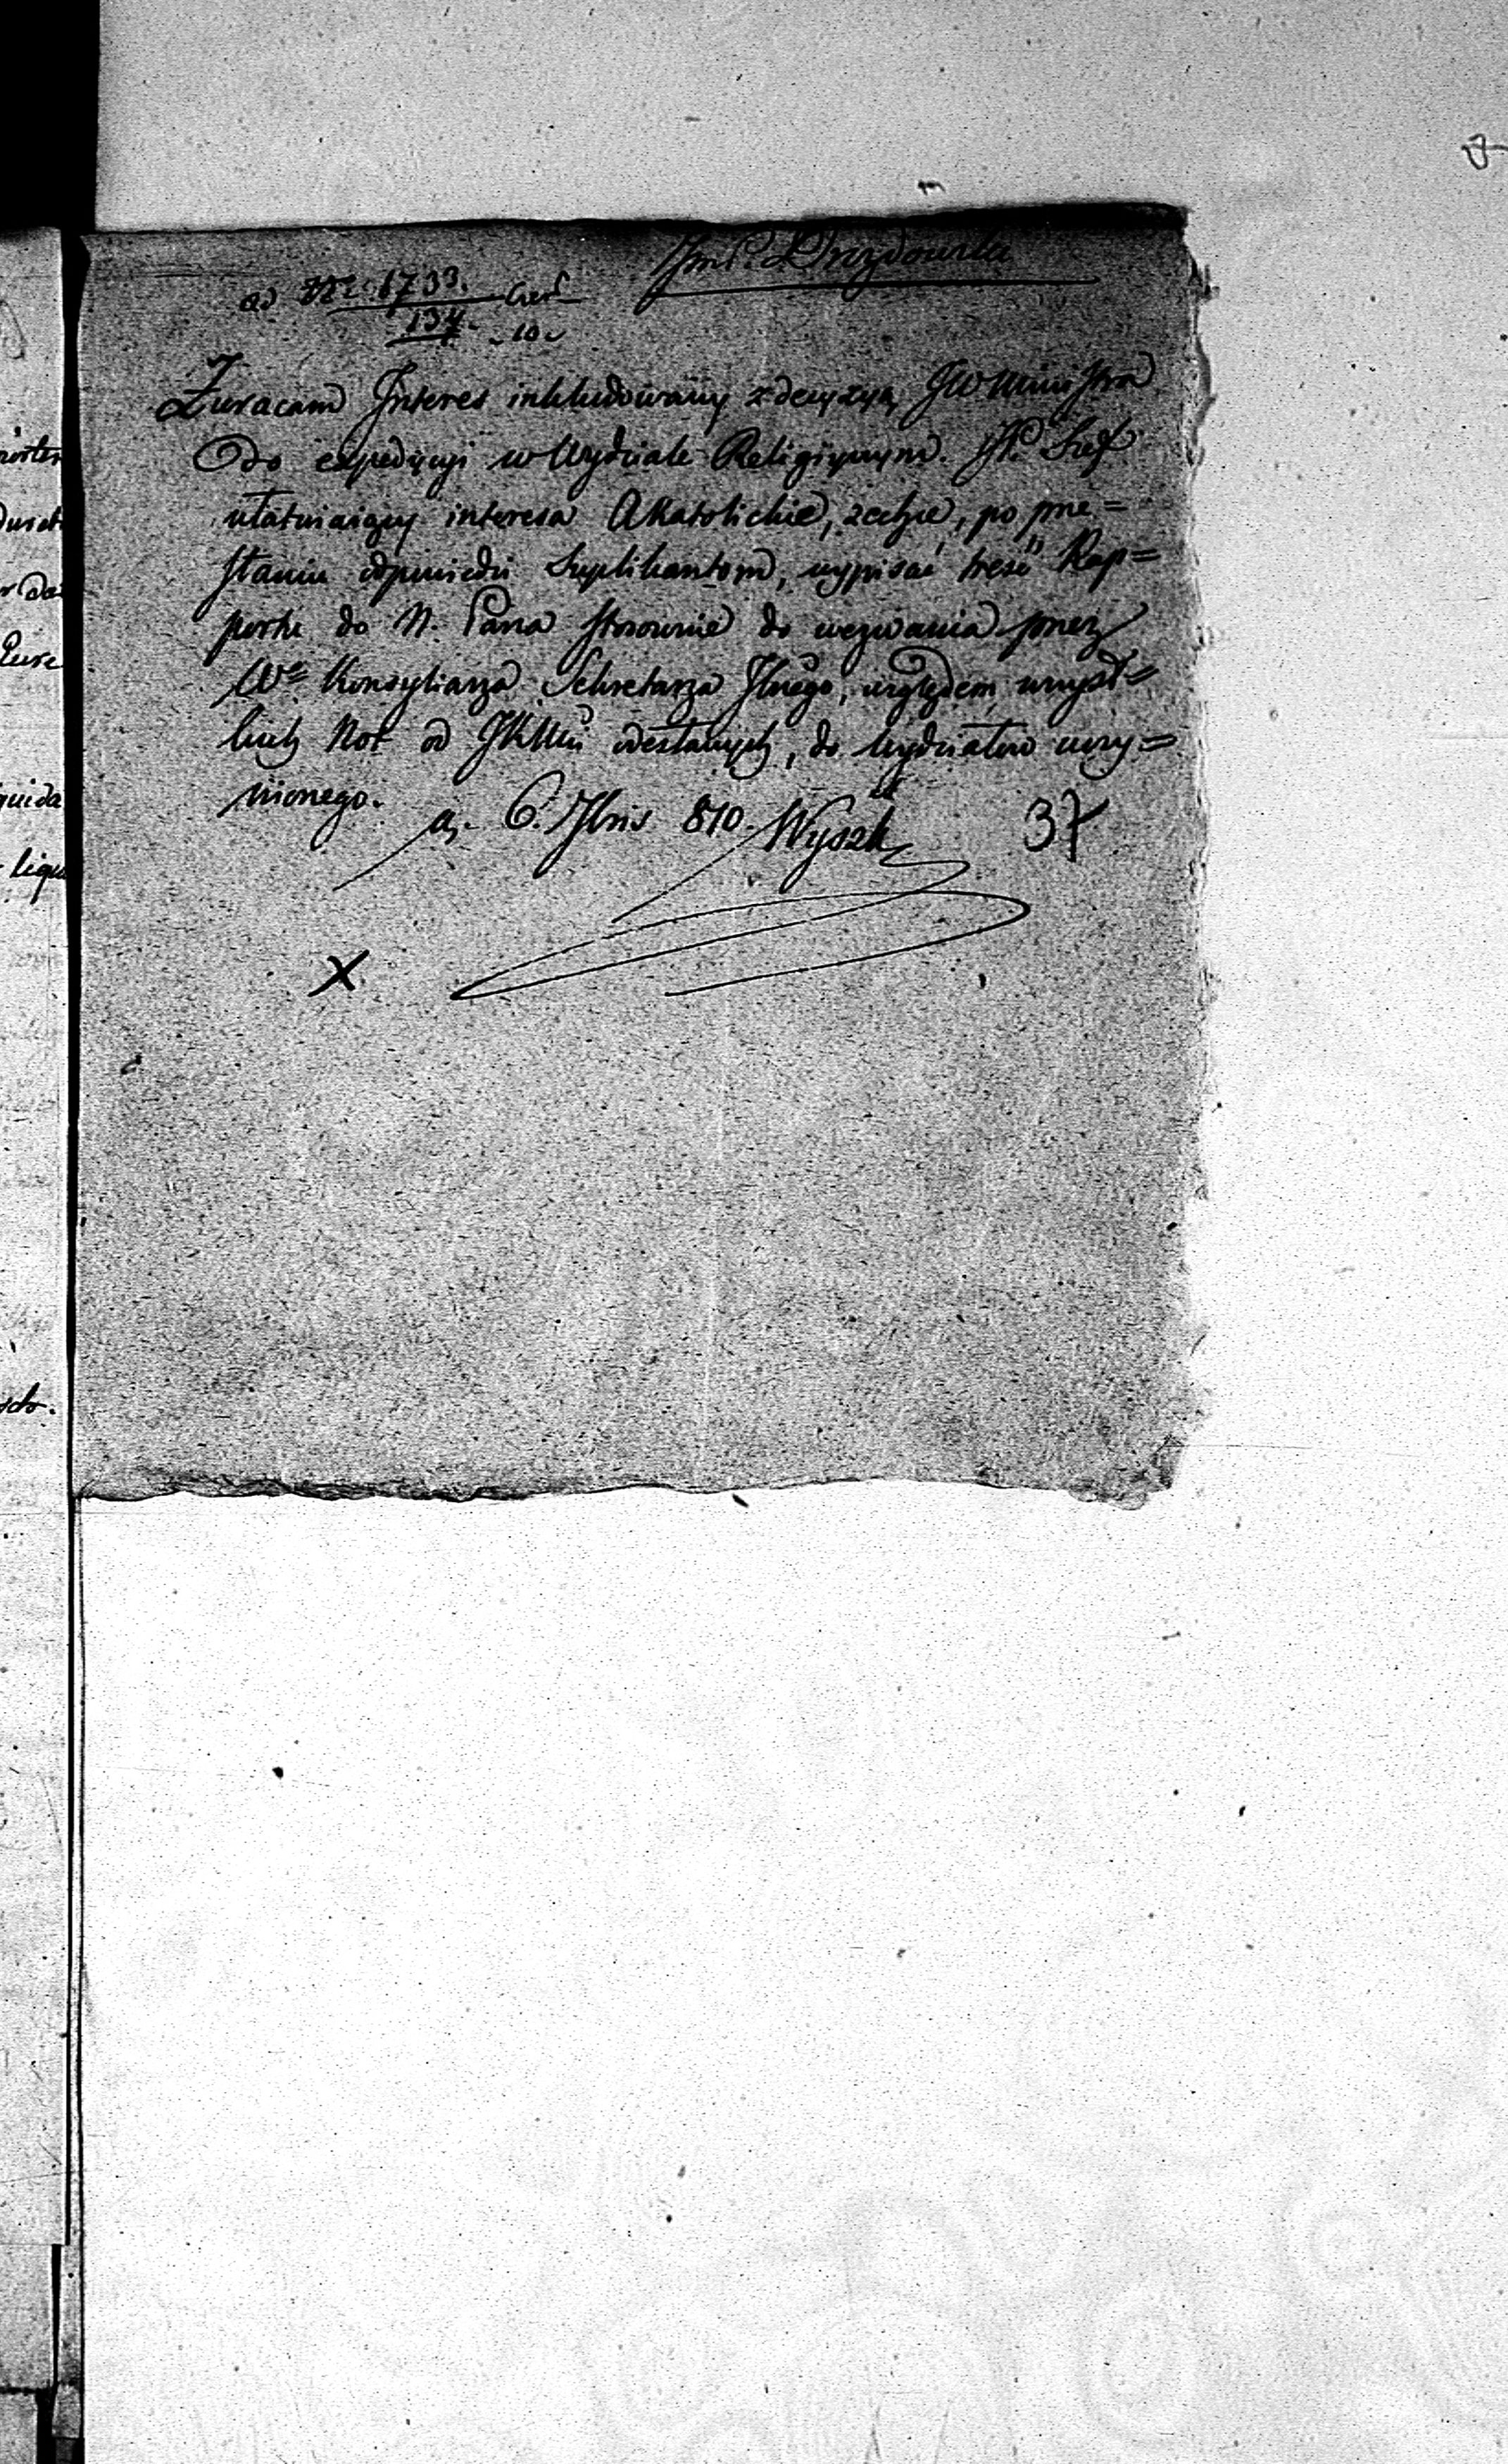 ad Nr. 6733.
137. 10
Zwracam Interes inkludowany z decyzyą JW Ministra
do expedycyi w Wydziale Religiynym. JP. Szef
ułatwiaiący interesa Akatolickie, zechce, po prze=
słaniu odpowiedzi Suplikantom, wypisać treść Rap=
portu do N. Pana stosownie do wezwania przez
We Konsyliarza Sekretarza Jlnego, względem wszyst=
kich Not od JKMci odesłanych, do Wydziałów uczy=
nionego.
d. 6. 7bris 810. Wyszk
37
X